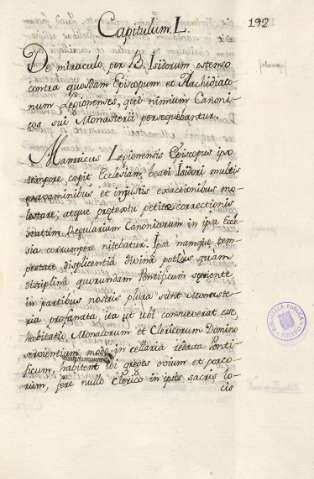 Capitulum L.
192
De miraculo, per B. Isidorum ostenso
contra quosdam Episcopum et Archidiaco-
num Legionenses, qui nimium Canoni-
cos sui Monasterii persequebantur.
Manricus Legionensis Episcopus ipso
tempore, cepit Ecclesiam beati Isidori multis
gravaminibus et injustis exactionibus mo-
lestare, atque pretextu petite correctionis
statum Regularium Canonicorum in ipsa Ecle-
sia corrumpere nitebatur. Ipsa namque tem-
pestate displicentia Divina potius quam
disciplina quorundam Pontificum
in partibus nostris plura sunt Monaste-
ria profanata ita ut ubi consueverat esse
habitatio Monachorum et Clericorum Domino
servientium, modo in cellaria redacta Ponti-
ficum, habitent ibi greges ovium et porco-
rum, fere nullo Clerico in ipsis sacris lo-
cis